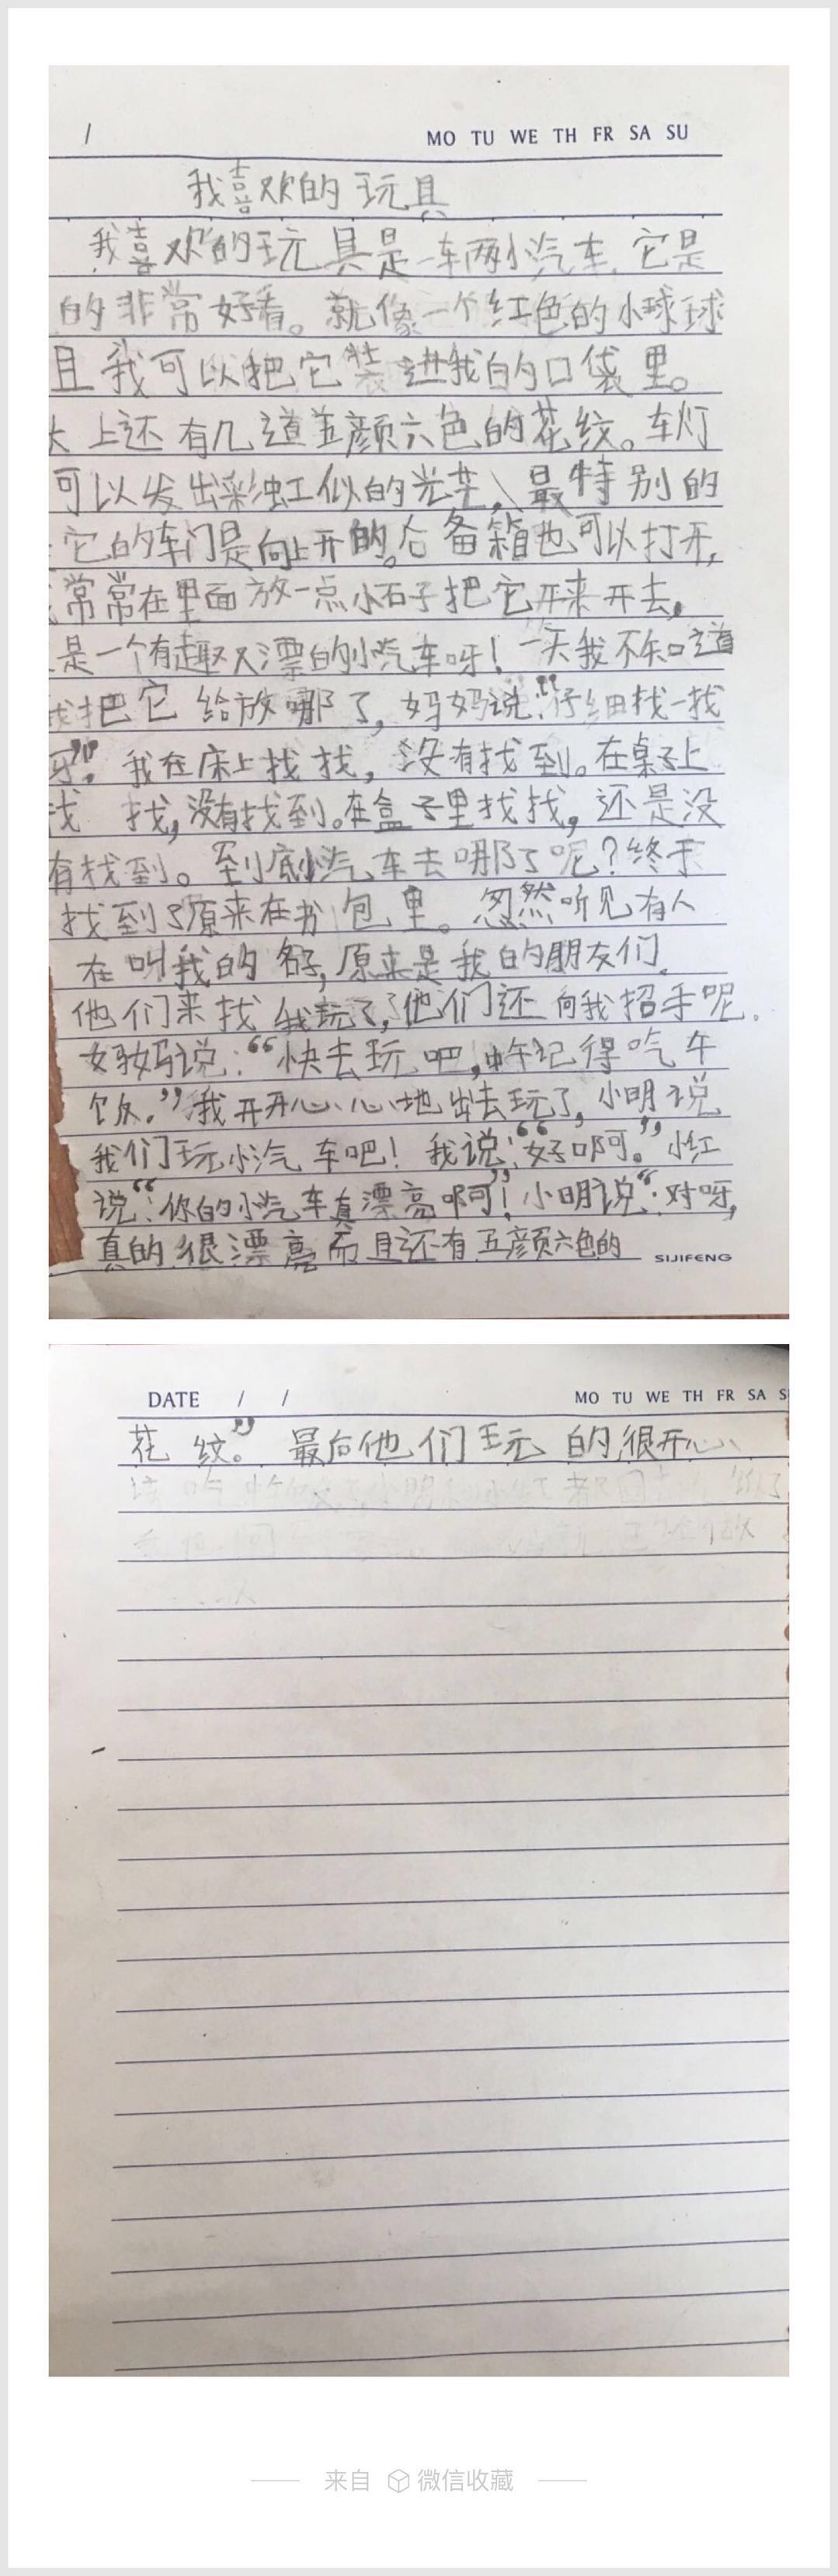 /
MO TU WE TH FR SA SU
我喜欢的玩具
我喜欢的玩具是一车两小汽车,它是
的非常好看。就像一个红色的小球球
且我可以把它装进我的口袋里。
上还有几道五颜六色的花纹。车灯
可以发出彩虹似的光芒、最特别的
它的车门是向上开的。后备箱也可以打开,
常常在里面放一点小石子把它开来开去,
是一个有趣又漂的小汽车呀!一天我不知道
我把它给放哪了,妈妈说:“仔细找一找
牙”。我在床上找找,没有找到。在桌子上
找 找,没有找到。在盒子里找找,还是没
有找到。到底小汽车去哪了呢?终于
找到了原来在书包里。忽然听见有人
在叫我的名子,原来是我的朋友们,
他们来找我玩了,他们还向我招手呢。
妈妈说:“快去玩吧,中午记得吃午
饭。”我开开心心地出去玩了,小明说
我们玩小汽车吧!我说:“好啊。”小红
说“:你的小汽车真漂亮啊”!小明说“:对呀,
真的很漂亮而且还有五颜六色的
SIJIFENG
DATE / /
MO TU WE TH FR SA S
花纹。”最后他们玩的很开心、
来自 微信收藏